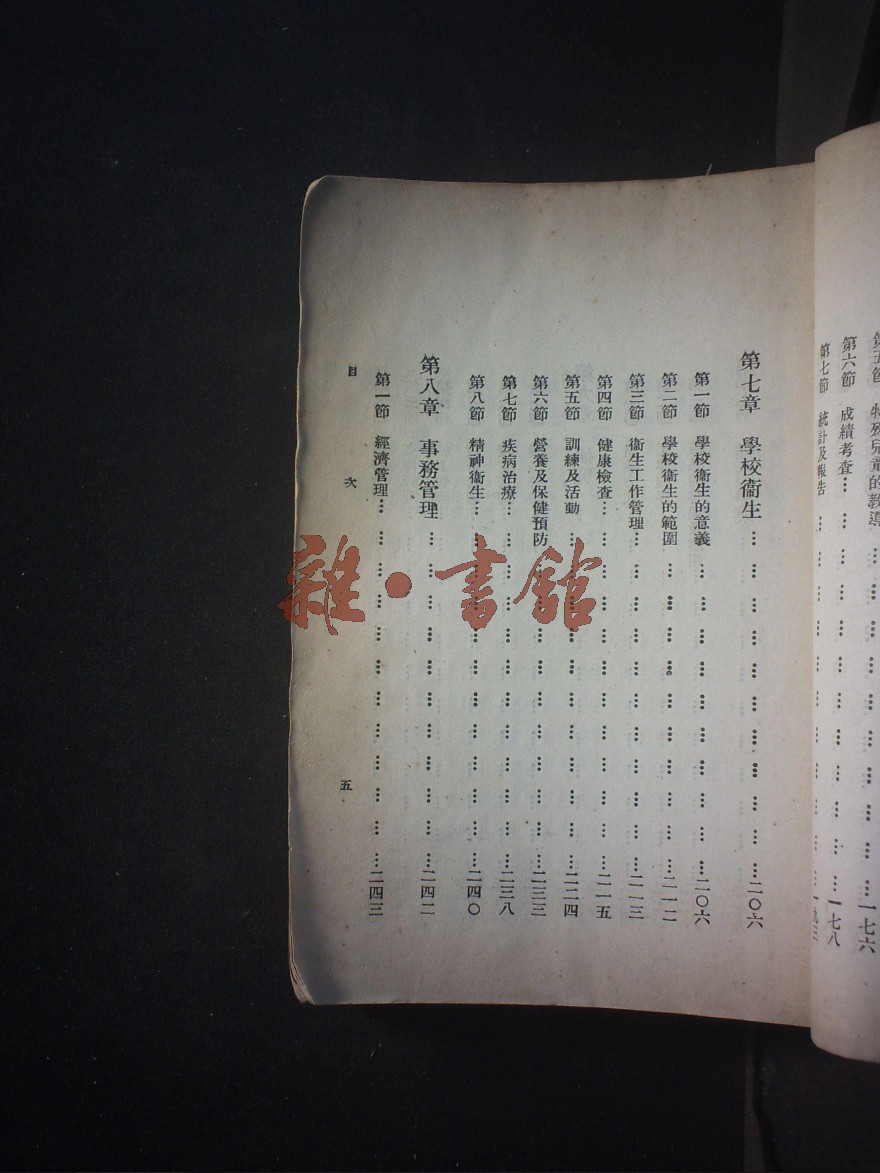 第五節 特殊兒童的教導 … … … … … … … … … … …一七六
第六節 成績考查… … … … … … … … … … … … …一七八
第七節 統計及報告 … … … … … … … … … … … …
第七章 學校衞生… … … … … … … … … … …二〇六
第一節 學校衞生的意義 … … … … … … … … … …二〇六
第二節 學校衞生的範圍 … … … … … … … … … …二一二
第三節 衞生工作管理… … … … … … … … … … …二一三
第四節 健康檢查… … … … … … … … … … … …二一五
第五節 訓練及活動 … … … … … … … … … … …二二四
第六節 營養及保健預防… … … … … … … … … … …二三三
第七節 疾病治療… … … … … … … … … … … …二三八
第八節 精神衞生… … … … … … … … … … … …二四〇
第八章 事務管理 … … … … … … … … … … …二四二
第一節 經濟管理… … … … … … … … … … … …二四三
目 次 五
雜·書館